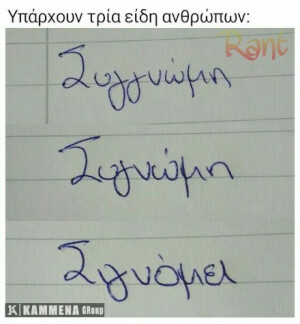 Υπάρχουν τρία είδη ανθρώπων:
Rant
Συγγνώμη
Συγνώμη
Σιγνόμει
K KAMMENA GRoup